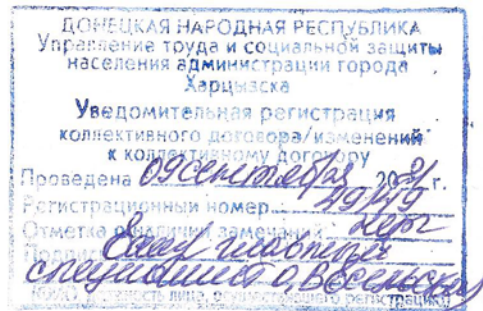 ДОНЕЦКАЯ НАРОДНАЯ РЕСПУБЛИКА
Управление труда и социальной защиты
населения администрации города
Харцызска
Уведомительная регистрация
коллективного договора/изменений
к коллективному договору
Проведена 09 сентября 2021 г.
Регистрационный номер
Отметка о наличии замечаний
Подпись главный
специалист О.
(ФИО, должность лица, осуществляющего регистрацию)